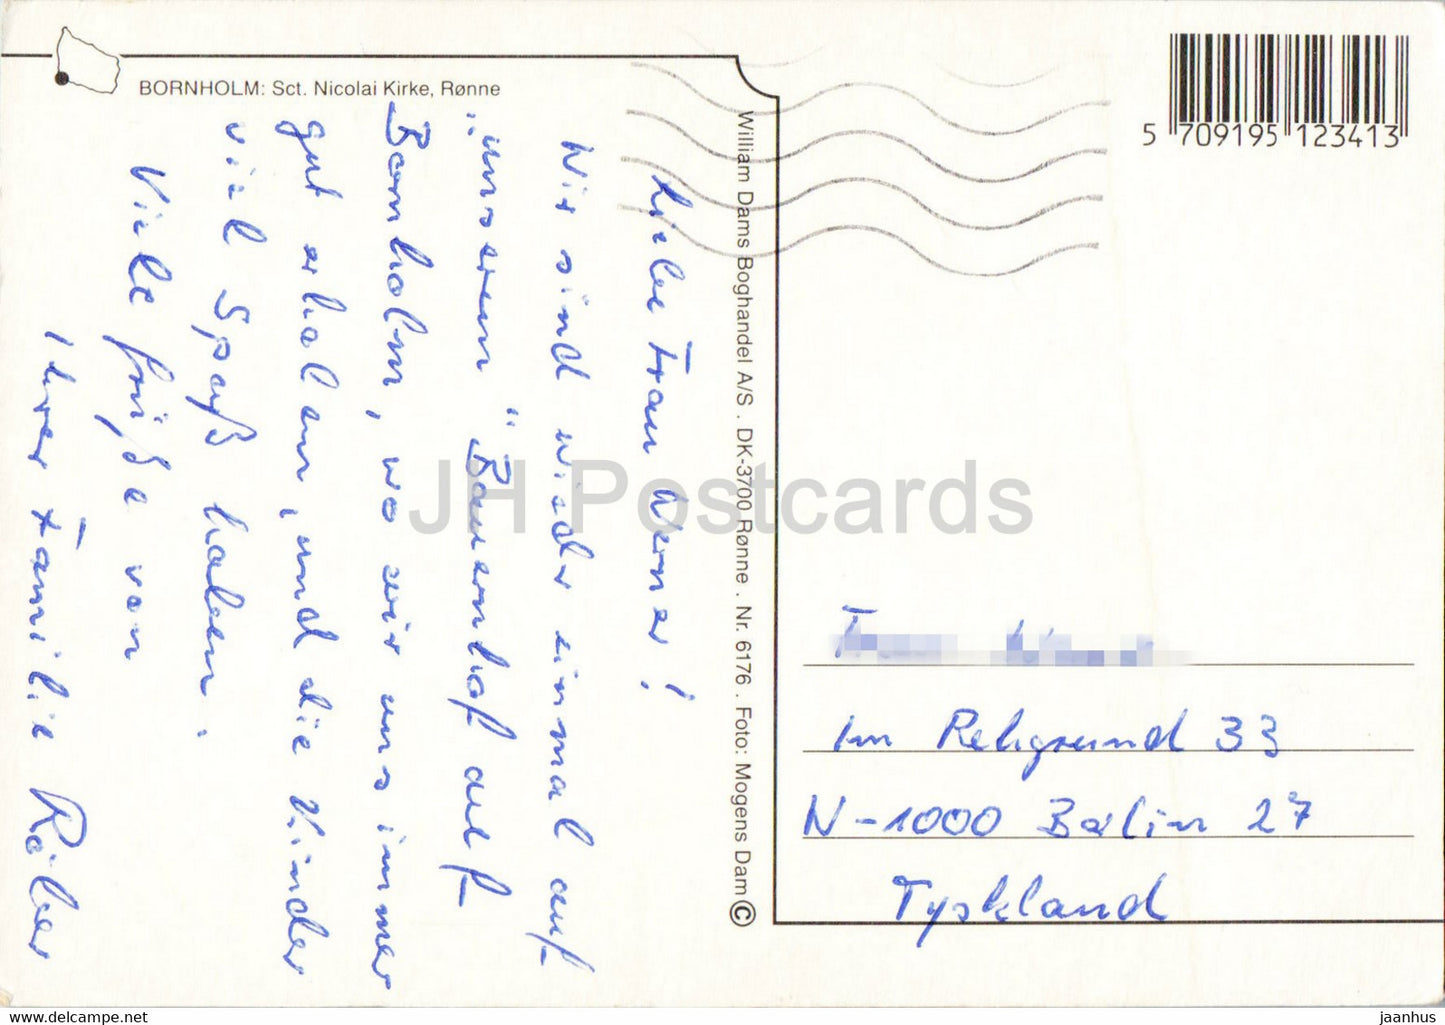 BORNHOLM: Sct. Nicolai Kirke, Rønne
5 709195 123413
William Dams Boghandel A/S . DK-3700 Rønne . Nr. 6176 . Foto: Mogens Dam ©
Liebe Frau Werner!
Wir sind wieder einmal auf
„unserem" Bauernhof auf
Bornholm, wo wir uns immer
gut erholen, und die Kinder
viel Spaß haben.
Viele Grüße von
Ihrer Familie Röber
Im Rehgrund 33
N-1000 Berlin 27
Tyskland
JH Postcards
jaanhus
www.delcampe.net